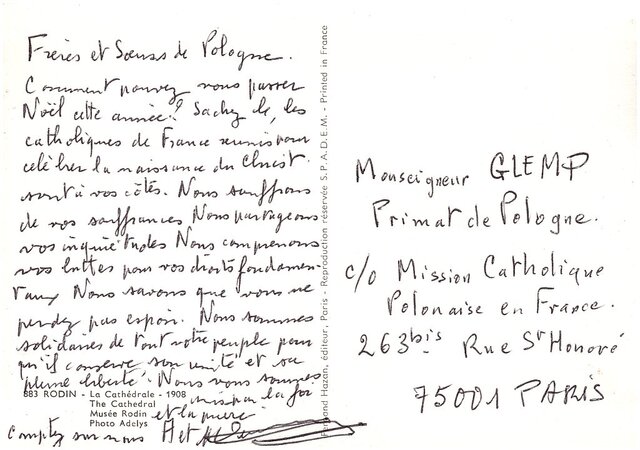 Frères et Sœurs de Pologne.
Comment pouvez vous passer
Noël cette année? Sachez le, les
catholiques de France réunis pour
célébrer la naissance du Christ.
sont à vos côtés. Nous souffrons
de vos souffrances Nous partageons
vos inquiétudes Nous comprenons
vos luttes pour vos droits fondamen-
taux Nous savons que vous ne
perdez pas espoir. Nous sommes
solidaires de tout votre peuple pour
qu'il conserve son unité et sa
"pleine liberté". Nous vous sommes
unis par la foi
et la prière
Comptez sur nous
883 RODIN - La Cathédrale - 1908
The Cathedral
Musée Rodin
Photo Adelys
Hazan, éditeur, Paris - Reproduction réservée S.P.A.D.E.M. - Printed in France
Monseigneur GLEMP
Primat de Pologne.
c/o Mission Catholique
Polonaise en France.
263bis Rue St Honoré
75001 PARIS